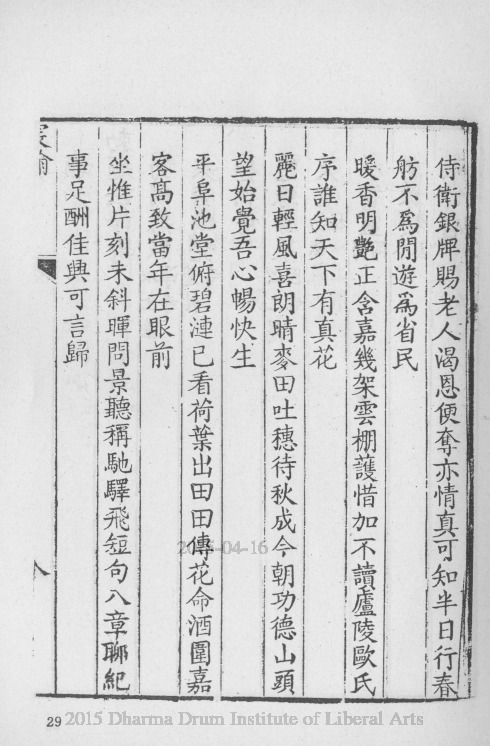 侍衛銀牌賜老人渴恩便奪亦情真可知半日行春
舫不爲閒遊爲省民
暖香明艷正含嘉幾架雲棚護惜加不讀廬陵歐氏
序誰知天下有真花
麗日輕風喜朗晴麥田吐穗待秋成今朝功德山頭
望始覺吾心暢快生
平阜池堂俯碧漣已看荷葉出田田傳花命酒圍嘉
客高致當年在眼前
坐惟片刻未斜暉問景聽稱馳驛飛短句八章聊紀
事足酬佳興可言歸
宸翰
八
2015-04-16
29 2015 Dharma Drum Institute of Liberal Arts